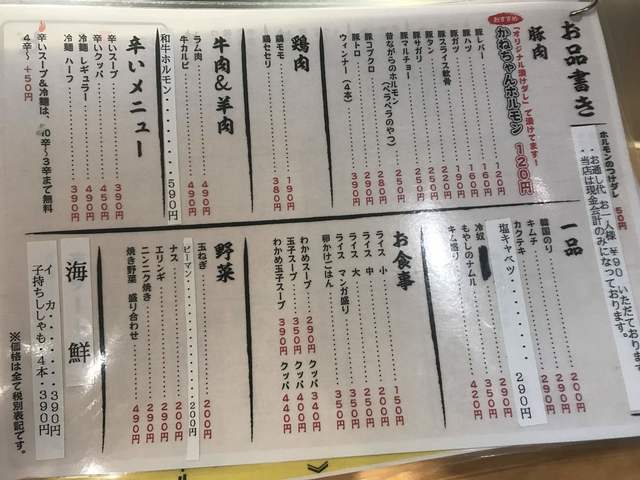 お品書き
ホルモンのつけダレ 50円
お通し代 お一人様 ¥90 いただております。
当店は現金会計のみになっております。
豚肉
おすすめ
「オリジナル漬けダレ」で漬けてます!
かねちゃんホルモン 120円
豚レバー 120円
豚ハツ 160円
豚ガツ 190円
豚スライス軟骨 160円
豚タン 220円
豚サガリ 250円
豚マルチョー 250円
昔ながらのホルモン(ペラペラのやつ) 250円
豚コブクロ 280円
豚トロ 290円
ウィンナー(4本) 390円
鶏肉
鶏モモ 190円
鶏セセリ 380円
牛肉&羊肉
ラム肉 490円
牛カルビ 490円
和牛ホルモン 590円
辛いメニュー
辛いスープ 390円
辛いクッパ 450円
冷麺 レギュラー 490円
冷麺 ハーフ 390円
辛いスープ&冷麺は、10辛〜3辛まで無料
4辛〜+50円
一品
韓国のり 200円
キムチ 290円
カクテキ 290円
塩キャベツ 290円
冷奴
もやしのナムル 350円
キム盛り 420円
お食事
ライス 小 150円
ライス 中 200円
ライス 大 250円
ライス マンガ盛り 350円
卵かけごはん 350円
わかめスープ 290円 クッパ 340円
玉子スープ 350円 クッパ 400円
わかめ玉子スープ 390円 クッパ 440円
野菜
玉ねぎ 200円
ピーマン 200円
ナス 200円
エリンギ 290円
ニンニク焼き 290円
焼き野菜 盛り合わせ 490円
海鮮
イカ 390円
子持ちししゃも・4本・390円
※価格は全て税別表記です。